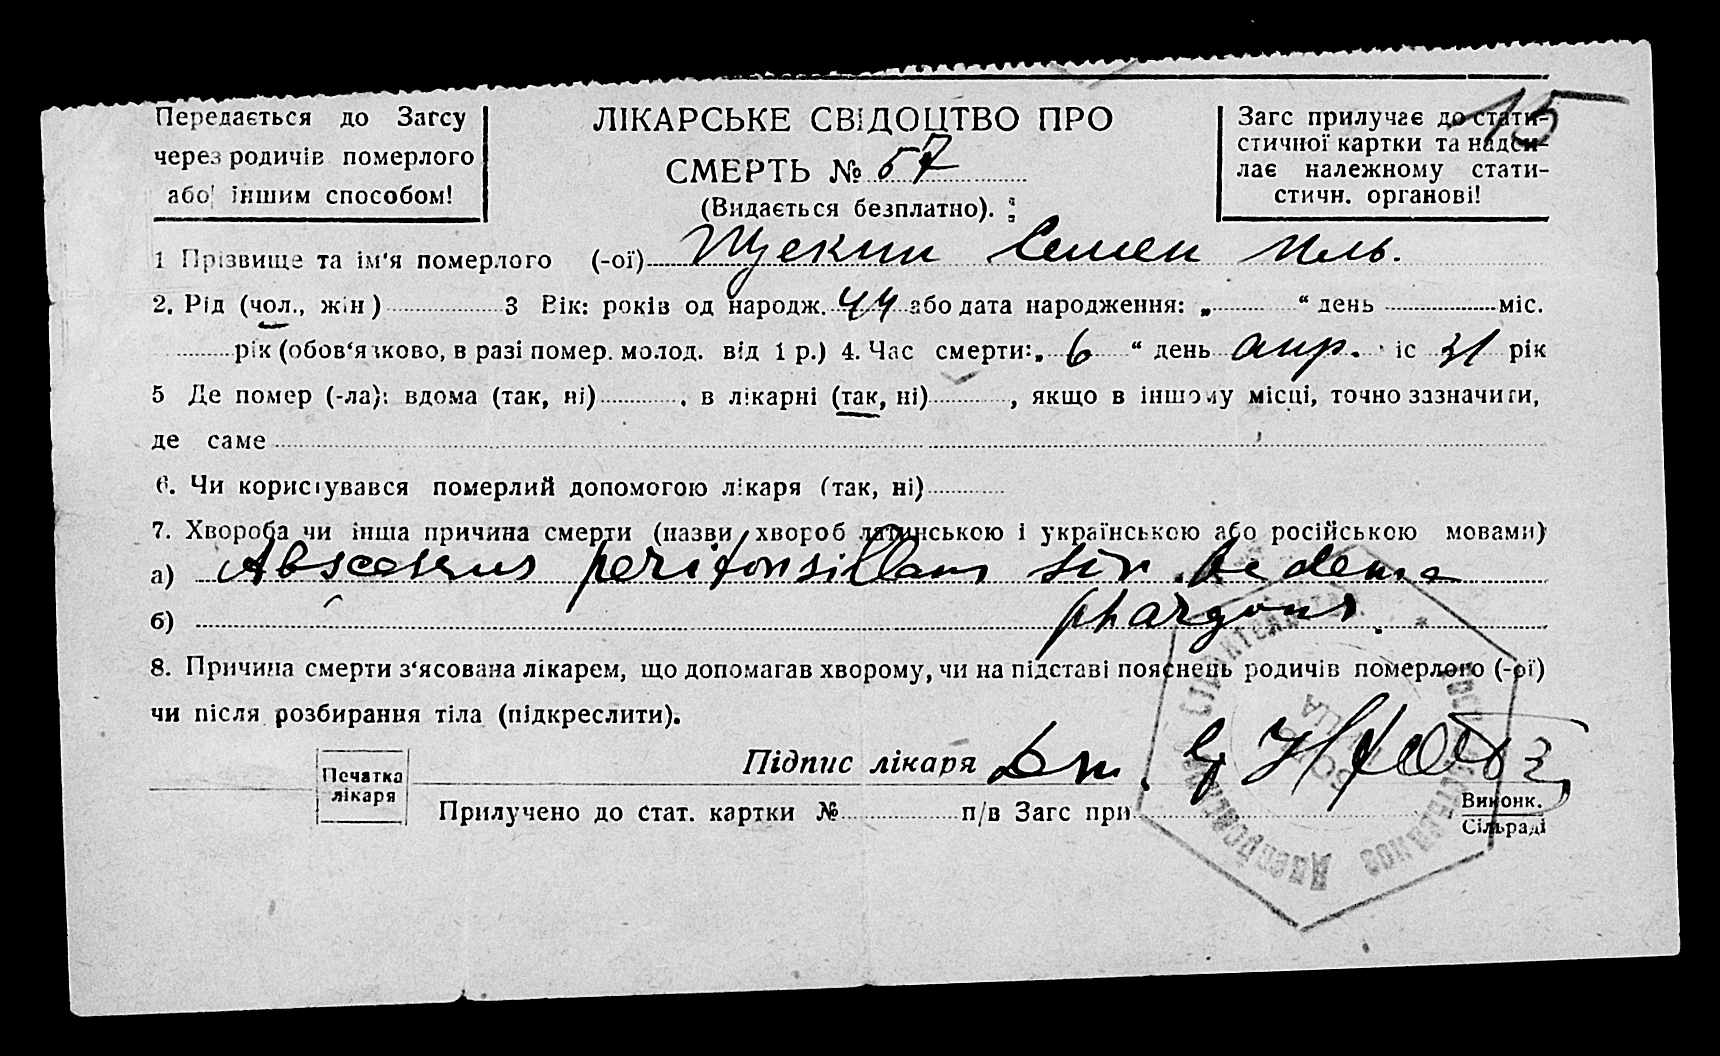 15
Передається до Загсу
через родичів померлого
або іншим способом!
ЛІКАРСЬКЕ СВІДОЦТВО ПРО
СМЕРТЬ № 57
(Видається безплатно).
Загс прилучає до стати-
стичної картки та надси-
лає належному стати-
стичн. органові!
1 Прізвище та ім'я померлого (-ої) Щекин Семен Иль.
2. Рід (чол., жін) 3 Вік: років од народж. 44 або дата народження: „ “ день міс.
рік (обов'язково, в разі помер. молод. від 1 р.) 4. Час смерти: „ 6 “ день апр. іс 31 рік
5 Де помер (-ла): вдома (так, ні) , в лікарні (так, ні) , якщо в іншому місці, точно зазначити,
де саме
6. Чи користувався померлий допомогою лікаря (так, ні)
7. Хвороба чи інша причина смерти (назви хвороб латинською і українською або російською мовами)
а) Abscessus peritonsillaris sin. Oedema
б) pharyngis
8. Причина смерти з'ясована лікарем, що допомагав хворому, чи на підставі пояснень родичів померлого (-ої)
чи після розбирання тіла (підкреслити).
Печатка
лікаря
Підпис лікаря
Прилучено до стат. картки № п/в Загс при
Виконк.
Сільраді